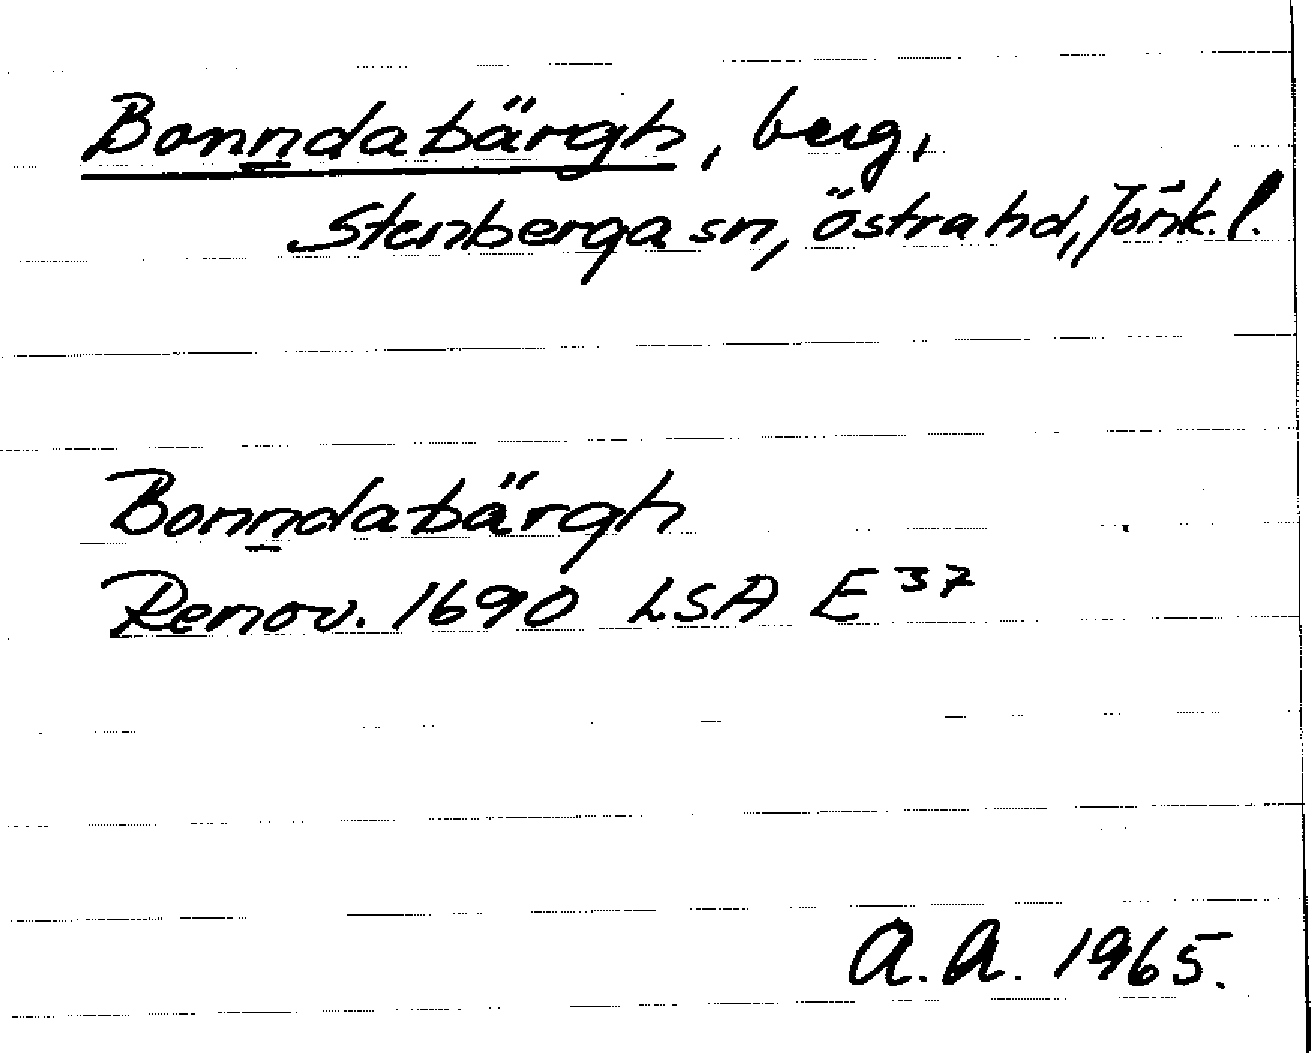 Bonndabärgh, berg,
Stenberga sn, Östra hd, Jönk. l.
Bonndabärgh
Renov. 1690 LSA E 37
A.A. 1965.